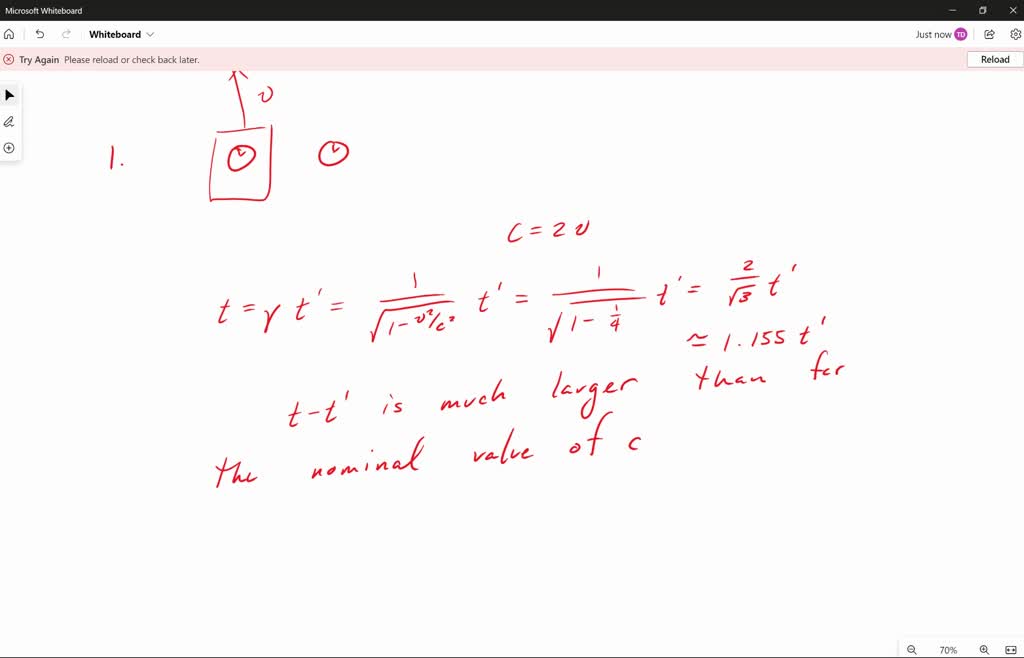 Microsoft Whiteboard
Whiteboard
Just now TD
Try Again Please reload or check back later.
Reload
v
1.
c = 2v
t = γ t' = 1/√(1-v²/c²) t' = 1/√(1-1/4) t' = 2/√3 t'
≃ 1.155 t'
t-t' is much larger than for
the nominal value of c
70%